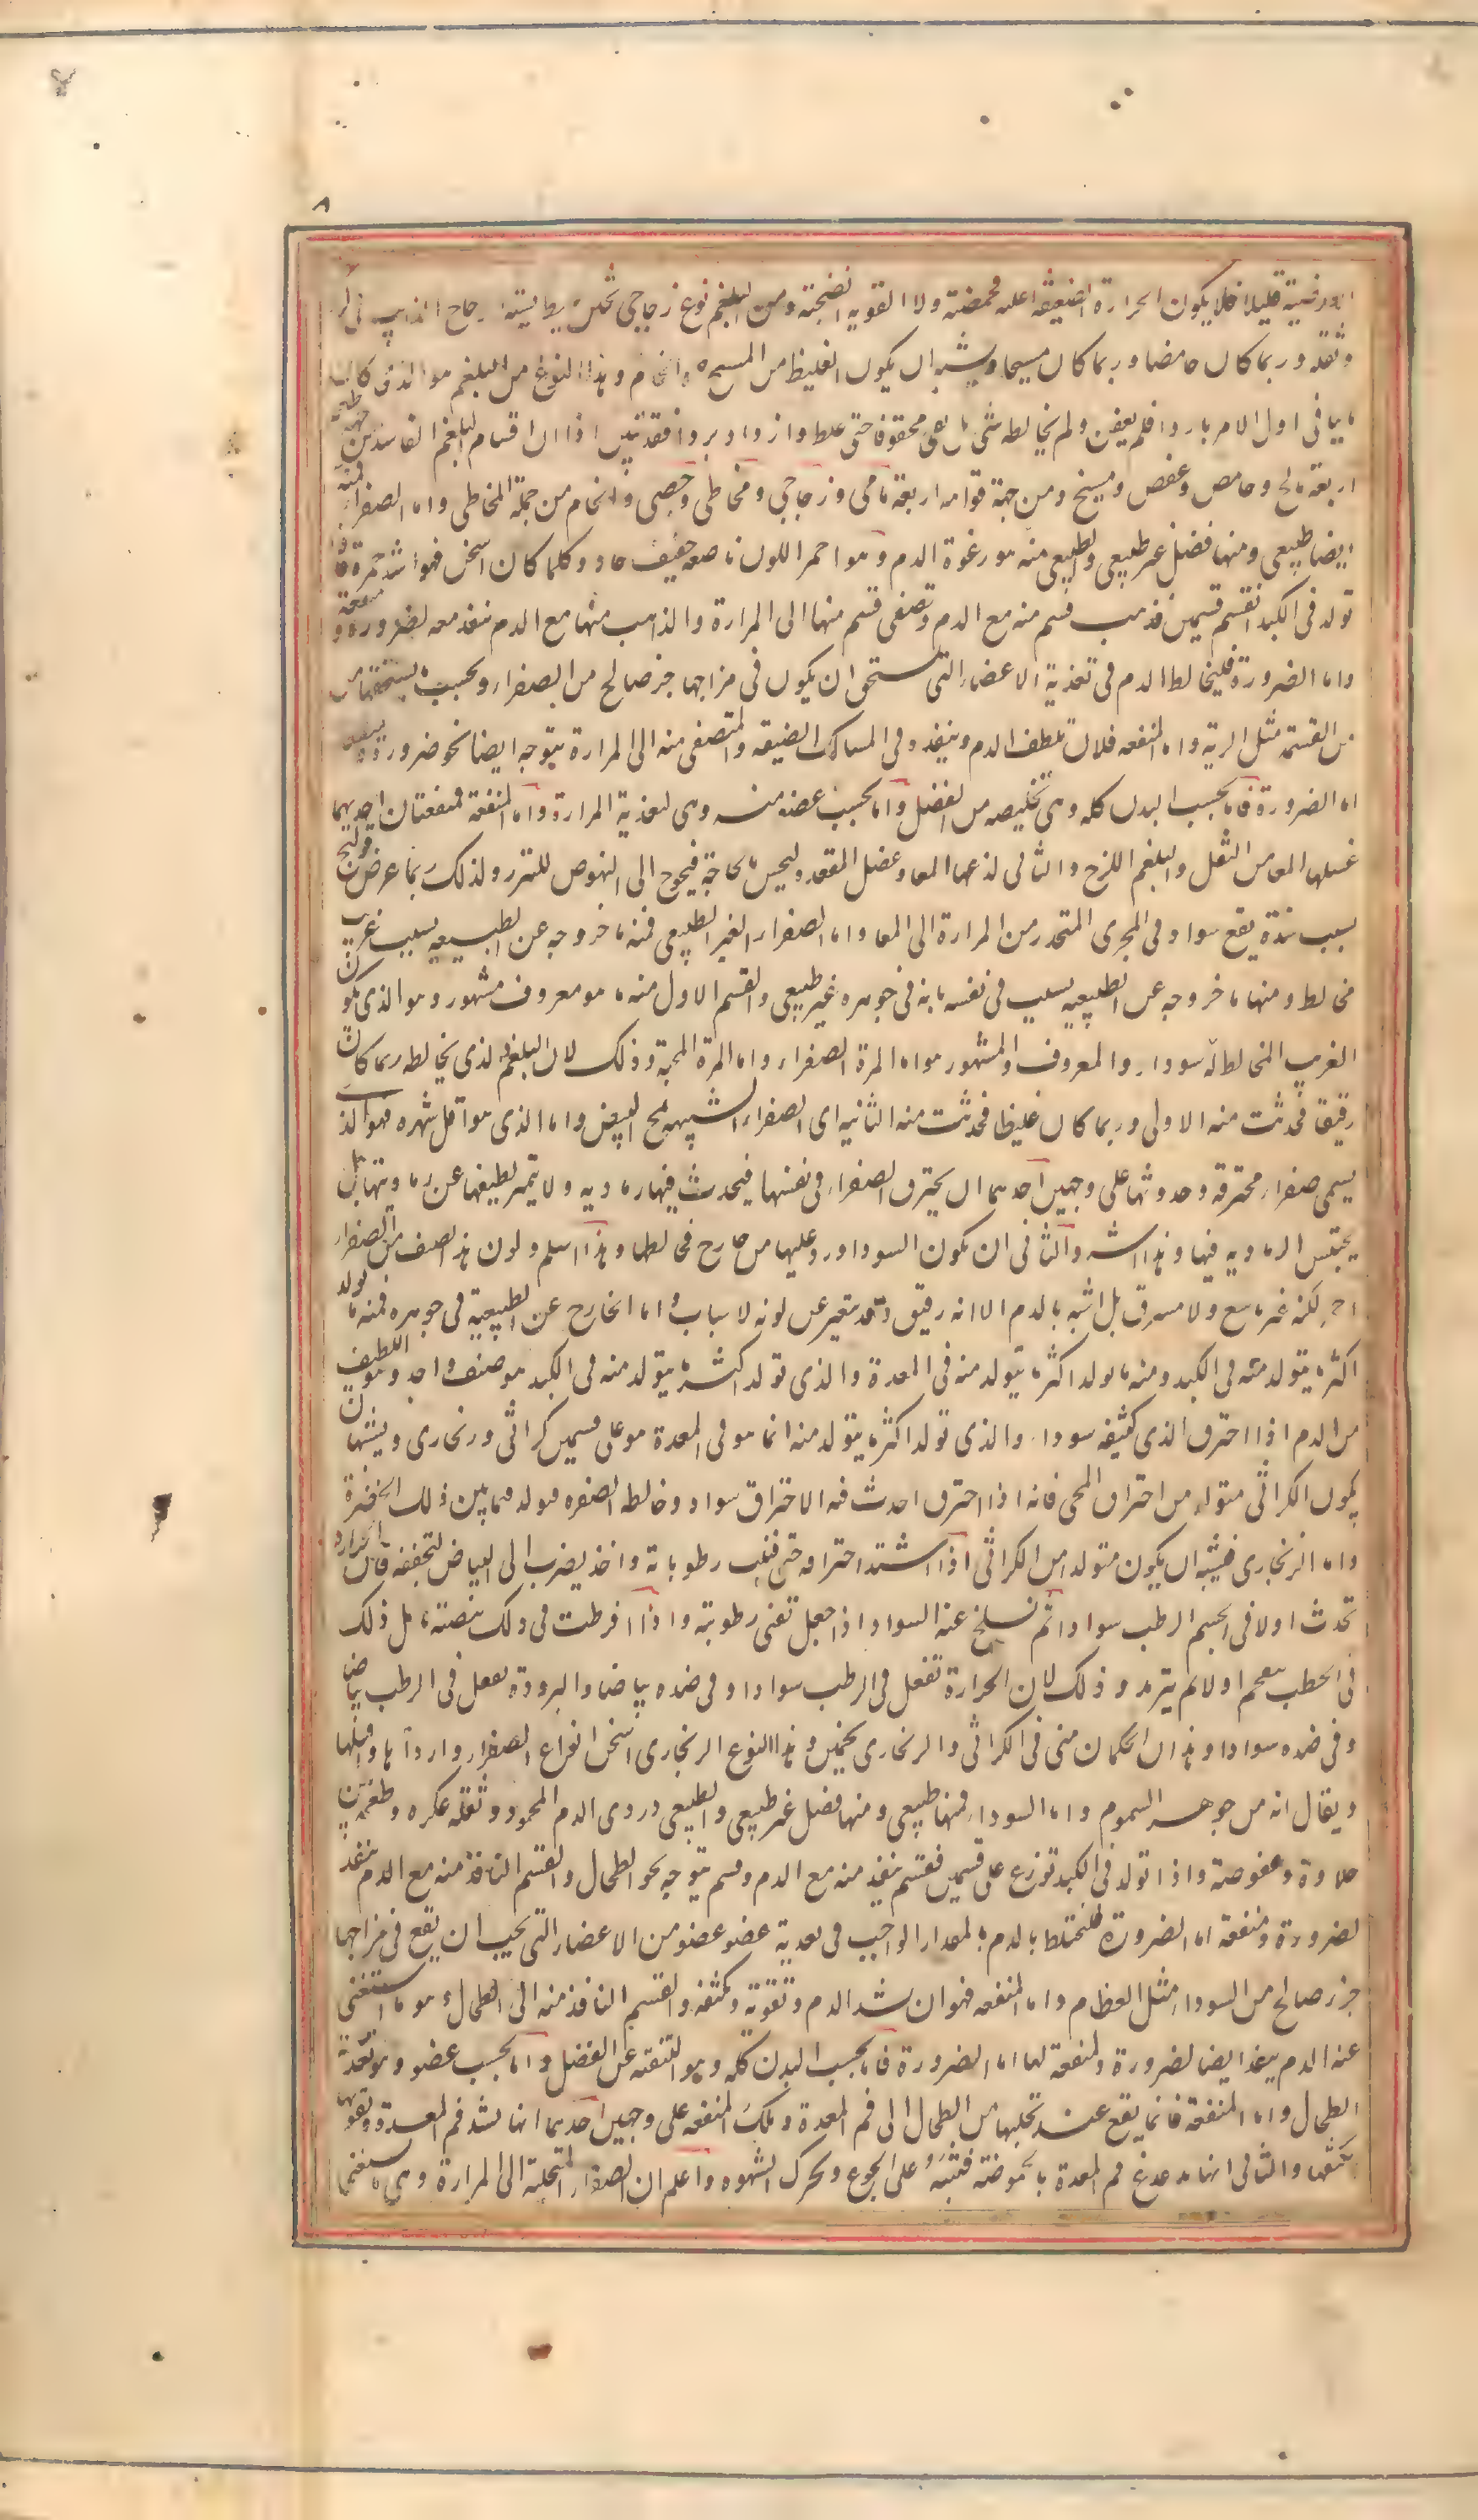 ٨
قليلا فلا يكون الحرارة الضعيفة اعلته فحمضته ولا القويه انضجته ومن البلغم نوع زجاجى ثخين
وثقله وربما كان حامضا وربما كان مسيخا ويشبه ان يكون الغليظ من المسيخ وهذا النوع من البلغم هو الذى كان
مائيا فى اول الامر باردا فلم يعفن ولم يخالطه شى بل بقى مخقوقا حتى غلظ وازداد بردا فقد تبين اذا ان اقسام البلغم الفاسد من جهة طعمه
اربعة مالح وحامض وعفص ومسيخ ومن جهة قوامه اربعة مائى وزجاجى ومخاطى وجصى والخام من جملة المخاطى واما الصفرا فمنه
ايضا طبيعى ومنها فضل غير طبيعى والطبيعى منه هو رغوة الدم وهو احمر اللون ناصعه خفيف حاد وكلما كان اسخن فهو اشد حمرة فاذا
تولد فى الكبد انقسم قسمين فذهب قسم منه مع الدم وتصفى قسم منها الى المرارة والذاهب منها مع الدم منفذ معه لضرورة ومنفعة
واما الضرورة فليخالط الدم فى تغذية الاعضاء التى تستحق ان يكون فى مزاجها جزء صالح من الصفراء وبحسب ما يستحقها من
من القسمة مثل الرية واما المنفعه فلان تلطف الدم وينفذه فى المسالك الضيقه والمتصفى منه الى المرارة يتوجه ايضا نحو ضرورة ومنفعه
اما الضرورة فاما بحسب البدن كله وهى تخليصه من الفضل واما بحسب عضو منه وهى لتغذية المرارة واما المنفعة فمنفعتان احديهما
غسلها المعا من الثفل والبلغم اللزج والثانى لذعها المعا وعضل المقعد وليحس بالحاجة فيحوج الى النهوض للتبرز ولذلك ربما عرض قولنج
بسبب سدة يقع سواد فى المجرى المنحدر من المرارة الى المعا واما الصفراء الغير الطبيعى فمنه ما خروجه عن الطبيعيه بسبب غريب
مخالط ومنها ما خروجه عن الطبيعيه بسبب فى نفسه بانه فى جوهره غير طبيعى والقسم الاول منه ما هو معروف مشهور وهو الذى يكون
الغريب المخالط له سوداء والمعروف والمشهور هو اما المرة الصفراء واما المرة المحية وذلك لان البلغم الذى يخالطه ربما كان
رقيقا فحدثت منه الاولى وربما كان غليظا فحدثت منه الثانيه اى الصفراء الشبيهه بمح البيض واما الذى هو اقل شهره فهو الذى
يسمى صفراء محترقه وحدوثها على وجهين احدهما ان يحترق الصفراء فى نفسها فيحدث فيها رماديه ولا يتميز لطيفها عن رماديتها بل
يحتبس الرماديه فيها وهذا شر والثانى ان تكون السودا وردت عليها من خارج فخالطها وهذا اسلم ولون هذا الصنف من الصفراء
احمر لكنه غير ناصع ولا مشرق بل اشبه بالدم الا انه رقيق وقد يتغير عن لونه لاسباب واما الخارج عن الطبيعية فى جوهره فمنه ما تولد
اكثر ما يتولد منه فى الكبد ومنه ما تولد اكثر ما يتولد منه فى المعدة والذى تولد اكثر ما يتولد منه فى الكبد هو صنف واحد وهو اللطيف
من الدم اذا احترق الذى كثيفه سوداء والذى تولد اكثر ما يتولد منه انما هو فى المعدة هو على قسمين كراثى وزنجارى ويشبه ان
يكون الكراثى متولد من احتراق المحى فانه اذا احترق احدث فيه الاحتراق سوادا وخالط الصفره فولد فيما بين ذلك الخضرة
واما الزنجارى فيشبه ان يكون متولدا من الكراثى اذا اشتد احتراقه حتى فنيت رطوباته واخذ يضرب الى البياض لتجففه فان الحراره
تحدث اولا فى الجسم الرطب سوادا ثم تسلخ عنه السواد اذا جعل تفنى رطوبته واذا افرطت فى ذلك بيضته تامل ذلك
فى الحطب يتفحم اولا ثم يترمد وذلك لان الحرارة تفعل فى الرطب سوادا وفى ضده بياضا والبرودة تفعل فى الرطب بياضا
وفى ضده سوادا وهذان الحكمان منى فى الكراثى والزنجارى تخمين وهذا النوع الزنجارى اسخن انواع الصفراء واردأها واقتلها
ويقال انه من جوهر السموم واما السوداء فمنها طبيعى ومنها فضل غير طبيعى والطبيعى دردى الدم المحمود وثفله عكره وطعمه بين
حلاوة وعفوصة واذا تولد فى الكبد توزع على قسمين فقسم ينفذ منه مع الدم وقسم يتوجه نحو الطحال والقسم النافذ منه مع الدم ينفذ
لضرورة ومنفعة اما الضرورة فليختلط بالدم بالمقدار الواجب فى تغذية عضو عضو من الاعضاء التى يجب ان يقع فى مزاجها
جزء صالح من السوداء مثل العظام واما المنفعه فهو ان يشد الدم وتقوية وتكثفه والقسم النافذ منه الى الطحال هو ما استغنى
عنه الدم ينفذ ايضا لضرورة ومنفعة لها اما الضرورة فاما بحسب البدن كله وهو التنقيه عن الفضل واما بحسب عضو وهو تغذية
الطحال واما المنفعة فانما يقع عند تحلبها من الطحال الى فم المعدة وتلك المنفعه على وجهين احدهما انها تشد فم المعدة وتقويها
وتكثفها والثانى انها تدغدغ فم المعدة بالحموضة فتنبه على الجوع وتحرك الشهوه واعلم ان الصفراء المتحلبة الى المرارة وهى ما يستغنى